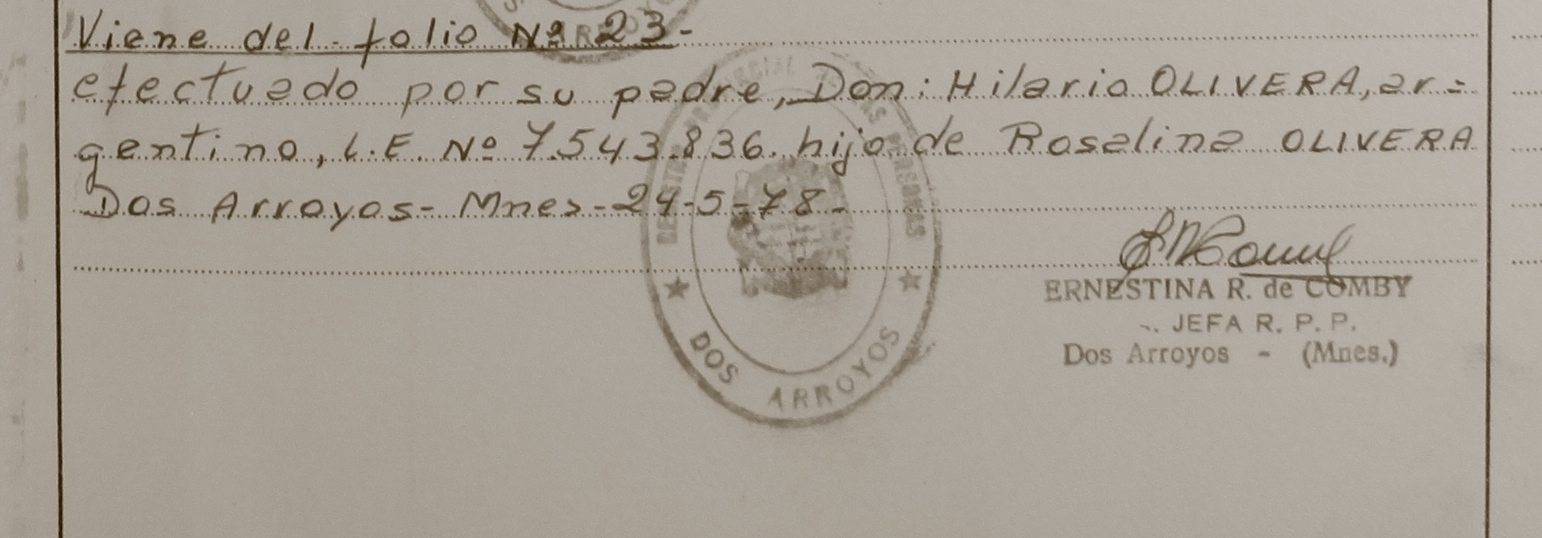 Viene del folio Nº 23-
efectuado por su padre, Don: Hilario OLIVERA, ar=
gentino, L.E. Nº 7.543.836. hijo de Rosalina OLIVERA
Dos Arroyos- Mnes-24-5-78-
ERNESTINA R. de COMBY
JEFA R. P. P.
Dos Arroyos - (Mnes.)
DOS ARROYOS